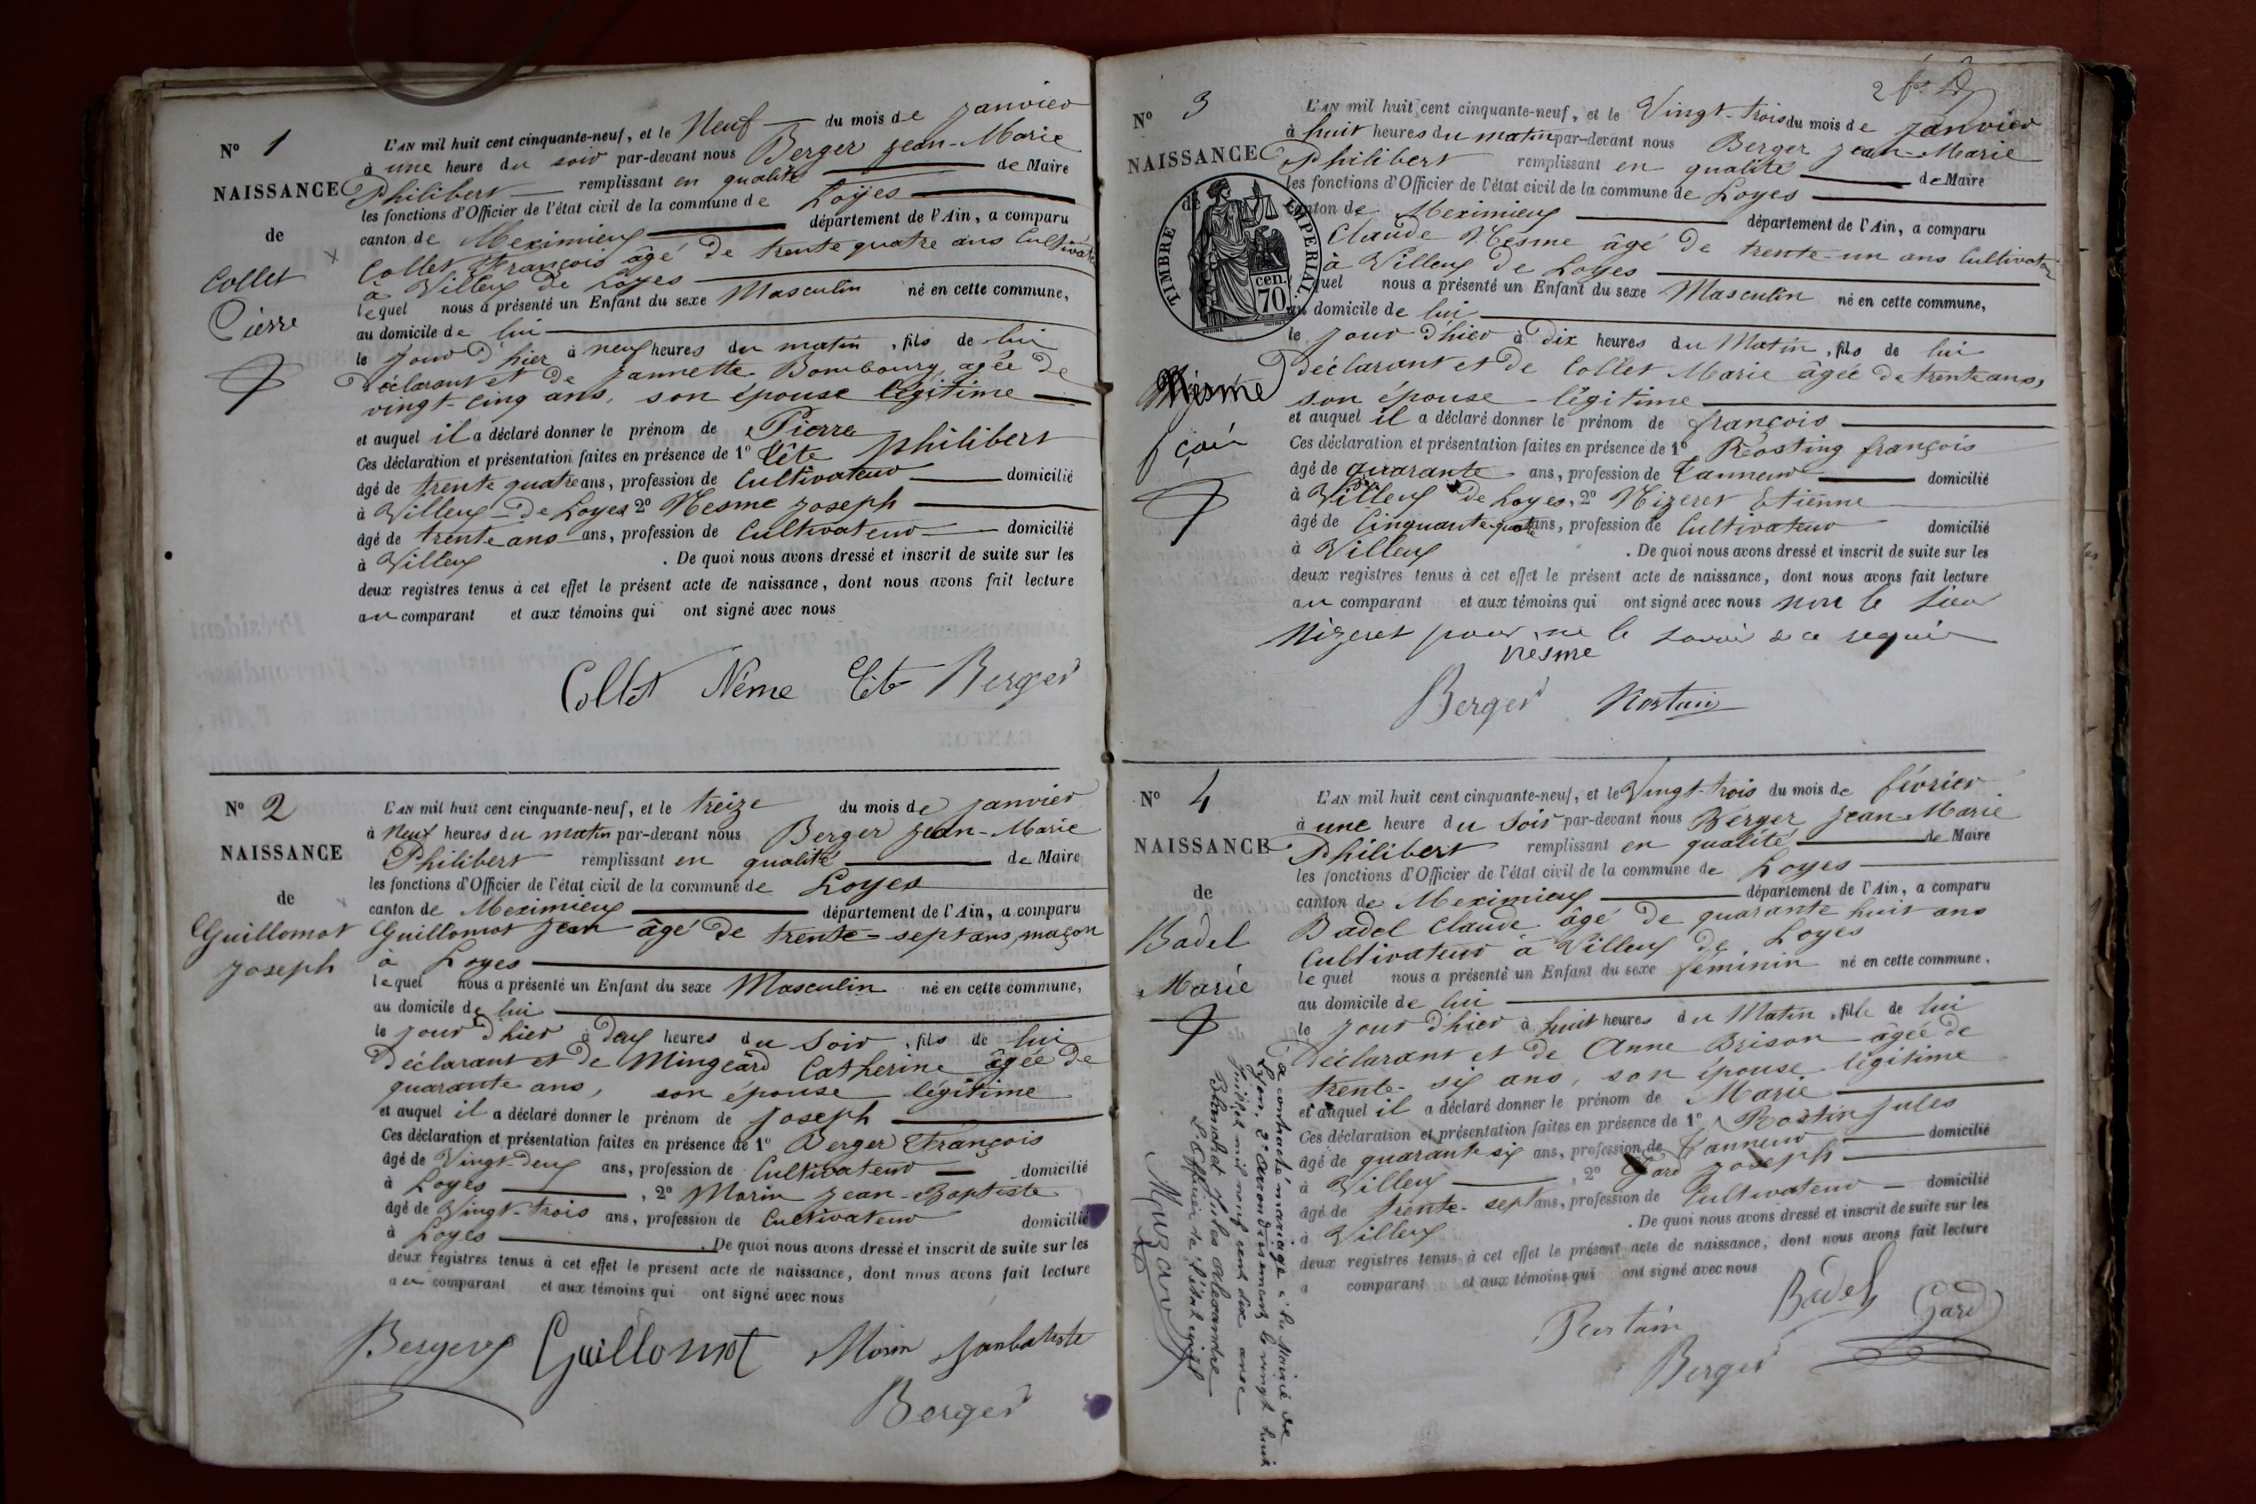 N° 1
NAISSANCE
de
Collet
Pierre
L'AN mil huit cent cinquante-neuf, et le Neuf du mois de janvier
à une heure du soir par-devant nous Berger Jean-Marie
Philibert remplissant en qualité de Maire
les fonctions d'Officier de l'état civil de la commune de Loyes
canton de Meximieux département de l'Ain, a comparu
Collet François âgé de trente quatre ans Cultivateur
à Villeux de Loyes
lequel nous a présenté un Enfant du sexe Masculin né en cette commune,
au domicile de lui
le jour d'hier à neuf heures du matin, fils de lui
Déclarant et de Jannette Bombourg, agée de
vingt-cinq ans, son épouse légitime
et auquel il a déclaré donner le prénom de Pierre
Ces déclaration et présentation faites en présence de 1° Tête Philibert
âgé de trente quatre ans, profession de Cultivateur domicilié
à Villeux de Loyes 2° Nesme Joseph
âgé de trente ans ans, profession de Cultivateur domicilié
à Villeux . De quoi nous avons dressé et inscrit de suite sur les
deux registres tenus à cet effet le présent acte de naissance, dont nous avons fait lecture
au comparant et aux témoins qui ont signé avec nous
Collet Neme Tête Berger
N° 2
NAISSANCE
de
Guillomot
Joseph
L'AN mil huit cent cinquante-neuf, et le treize du mois de janvier
à Neuf heures du matin par-devant nous Berger Jean-Marie
Philibert remplissant en qualité de Maire
les fonctions d'Officier de l'état civil de la commune de Loyes
canton de Meximieux département de l'Ain, a comparu
Guillomot Jean âgé de trente-sept ans maçon
à Loyes
lequel nous a présenté un Enfant du sexe Masculin né en cette commune,
au domicile de lui
le jour d'hier à deux heures du Soir, fils de lui
Déclarant et de Mingeard Catherine âgée de
quarante ans, son épouse légitime
et auquel il a déclaré donner le prénom de Joseph
Ces déclaration et présentation faites en présence de 1° Berger François
âgé de Vingt-deux ans, profession de Cultivateur domicilié
à Loyes , 2° Morin Jean-Baptiste
âgé de Vingt-trois ans, profession de Cultivateur domicilié
à Loyes . De quoi nous avons dressé et inscrit de suite sur les
deux registres tenus à cet effet le présent acte de naissance, dont nous avons fait lecture
au comparant et aux témoins qui ont signé avec nous
Berger Guillomot Morin Janbatiste
Berger
N° 3
NAISSANCE
de
Nesme
fçois
TIMBRE IMPERIAL
70 cen.
L'AN mil huit cent cinquante-neuf, et le Vingt-trois du mois de janvier
à huit heures du matin par-devant nous Berger Jean-Marie
Philibert remplissant en qualité de Maire
les fonctions d'Officier de l'état civil de la commune de Loyes
canton de Meximieux département de l'Ain, a comparu
Claude Nesme âgé de trente-un ans Cultivateur
à Villeux de Loyes
lequel nous a présenté un Enfant du sexe Masculin né en cette commune,
au domicile de lui
le jour d'hier à dix heures du Matin, fils de lui
Déclarant et de Collet Marie âgée de trente ans,
son épouse légitime
et auquel il a déclaré donner le prénom de françois
Ces déclaration et présentation faites en présence de 1° Rosting françois
âgé de quarante ans, profession de Tanneur domicilié
à Villeux de Loyes, 2° Mizeret Etienne
âgé de Cinquante quatre ans, profession de Cultivateur domicilié
à Villeux . De quoi nous avons dressé et inscrit de suite sur les
deux registres tenus à cet effet le présent acte de naissance, dont nous avons fait lecture
au comparant et aux témoins qui ont signé avec nous non le Sieur
Mizeret pour ne le savoir de ce requis
Nesme
Berger Rostain
N° 4
NAISSANCE
de
Badel
Marie
L'AN mil huit cent cinquante-neuf, et le Vingt-trois du mois de février
à une heure du Soir par-devant nous Berger Jean-Marie
Philibert remplissant en qualité de Maire
les fonctions d'Officier de l'état civil de la commune de Loyes
canton de Meximieux département de l'Ain, a comparu
Badel Claude âgé de quarante huit ans
Cultivateur à Villeux de Loyes
lequel nous a présenté un Enfant du sexe féminin né en cette commune,
au domicile de lui
le jour d'hier à huit heures du Matin, fille de lui
Déclarant et de Anne Brison âgée de
trente-six ans, son épouse légitime
et auquel il a déclaré donner le prénom de Marie
Ces déclaration et présentation faites en présence de 1° Rostin Jules
âgé de quarante six ans, profession de Tanneur domicilié
à Villeux , 2° Gard Joseph
âgé de trente-sept ans, profession de Cultivateur domicilié
à Villeux . De quoi nous avons dressé et inscrit de suite sur les
deux registres tenus à cet effet le présent acte de naissance, dont nous avons fait lecture
a comparant et aux témoins qui ont signé avec nous
Rostain Badel Gard
Berger
a contracté mariage à la Mairie de
Lyon, 2e arrondissement le vingt huit
juillet mil neuf cent dix avec
Blanchet Jules Alexandre
L'Officier de l'état civil